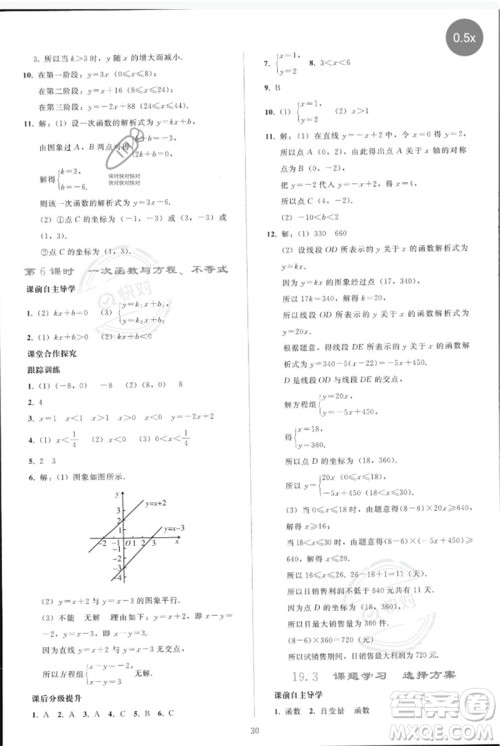 0.5x
3. 所以当 k>3 时，y 随 x 的增大而减小．
10. 在第一阶段：y=3x（0≤x≤8）
在第二阶段：y=x+16（8≤x≤16）
在第三阶段：y=-2x+88（
11. 解：（1）设一次函数的解析式为 y=kx+b．
由图象过 A，B 两点可得
解得{k=
b=-6.
快对快对快对
快对快对快对
则该一次函数的解析式为
（2）①点 C 的坐标为
②点 C 的坐标为
第 6 课时 一次函数与方程、不等式
课前自主导学
1. （1）kx+b
（2）kx+b
2. （1）kx+b>0 （2）kx+b<0
课堂合作探究
跟踪训练
1. （1）（-8，0） （2）（-8，0） -8
2. 4
3. x=1 x<1 x>1 y=-2x+2
4. （1）x<1/4 （2）x>1/4
5. 2 3
6. 解：（1）图象如图所示．
y=x+2
y=x-3
（2）y=x+2 与 y=x-3 的图象平行．
（3）不能 无解 理由如下：
因为直线 y=x+2 与 y=x-3 无交点，
所以方程组{x-y=-2，
x-y=3
无解．
课后分级提升
1. A 2. A 3. C 4. A 5. D 6. D
7. {x=-1，
y=2
8.
9. B
10. （1）{x=1，
（2）x>1
11. 解：（1）在直线 y=-x+2 中，
所以点 A（0，2），
所以点 A（0，2）关于 x 轴的对称
点为（0，-2）．
把
y=x-2．
（2）-10<b<2
12. 解：（1）330 660
（2）设线段 OD 所表示的函数解析式为
y=kx．
因为过点（17，340），
所以 17k=340．解得 k=20．
所以线段 OD 所表示的函数解析式为
y=20x．
根据题意，得线段 DE 所表示的函数解析
式为 y=340-5(x-22)=-5x+450．
D 是线段 OD 与线段 DE 的交点，
解方程组{y=20x，
y=-5x+450，
得{x=18，
y=360.
所以点 D 的坐标为（18，360），
所以 y={20x（0≤x≤18），
-5x+450（18<x≤30）.
（3）当 0≤x≤18 时，由题意得（8-6）×20x≥640，
解得 x≥16；
当 18<x≤30 时，由题意得（8-6）×
（-5x+450）≥640，
解得 x≤26．
所以 16≤x≤26，26-16+1=11（天）．
所以日销售利润不低于 640 元共有 11 天．
因为点 D 的坐标为（18，360），
所以日最大销售量为 360 件，
（8-6）×360=720（元），
所以试销售期间，日销售最大利润为 720 元．
19.3 课题学习 选择方案
课前自主导学
1. 函数 2. 自变量 函数
30
答案圈